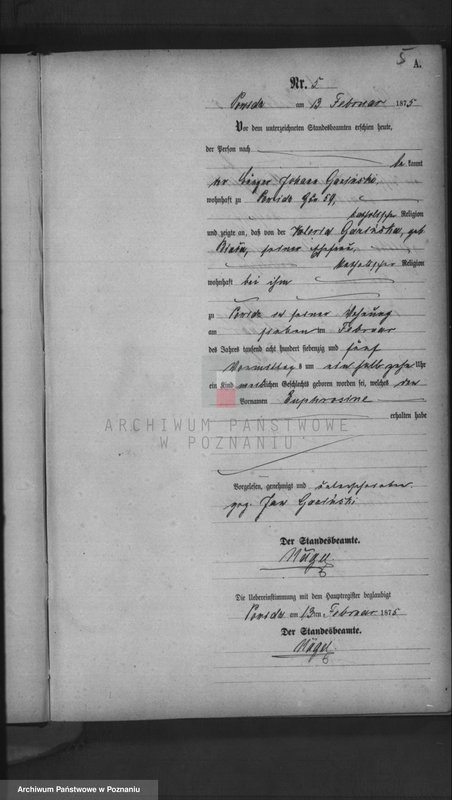 5 A.
Nr. 5
am 13 Februar 1875
Vor dem unterzeichneten Standesbeamten erschien heute,
der Person nach
be kannt
der Bürger Johann
wohnhaft zu No 59,
katholischer Religion
und zeigte an, daß von der
seiner Ehefrau,
katholischer Religion
wohnhaft bei ihm
zu in seiner Wohnung
am sieben ten Februar
des Jahres tausend acht hundert siebenzig und fünf
Vormittags um ein halb zehn Uhr
ein Kind weiblichen Geschlechts geboren worden sei, welches den
Vornamen Euphrosine
erhalten habe
ARCHIWUM PAŃSTWOWE
W POZNANIU
Vorgelesen, genehmigt und unterschrieben
gez. Jan
Der Standesbeamte.
Nägel
Die Uebereinstimmung mit dem Hauptregister beglaubigt
am 13ten Februar 1875
Der Standesbeamte.
Nägel
Archiwum Państwowe w Poznaniu